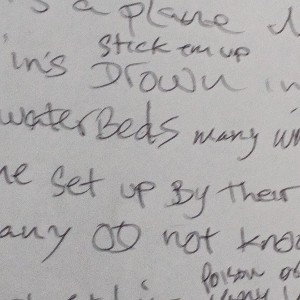 s a plane
Stick em up
in's Drown in
waterBeds many
me Set up By Their
any OD not know
Poison